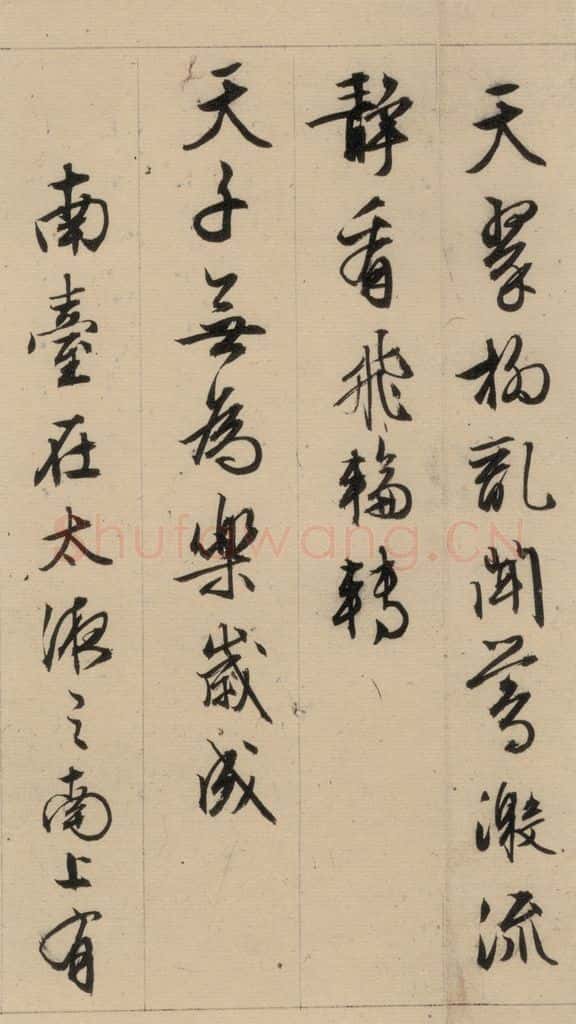 天翠柳亂聞鶯激流
靜看飛輪轉
天子無為樂歲成
南臺在太液之南上有
Shufawang.CN